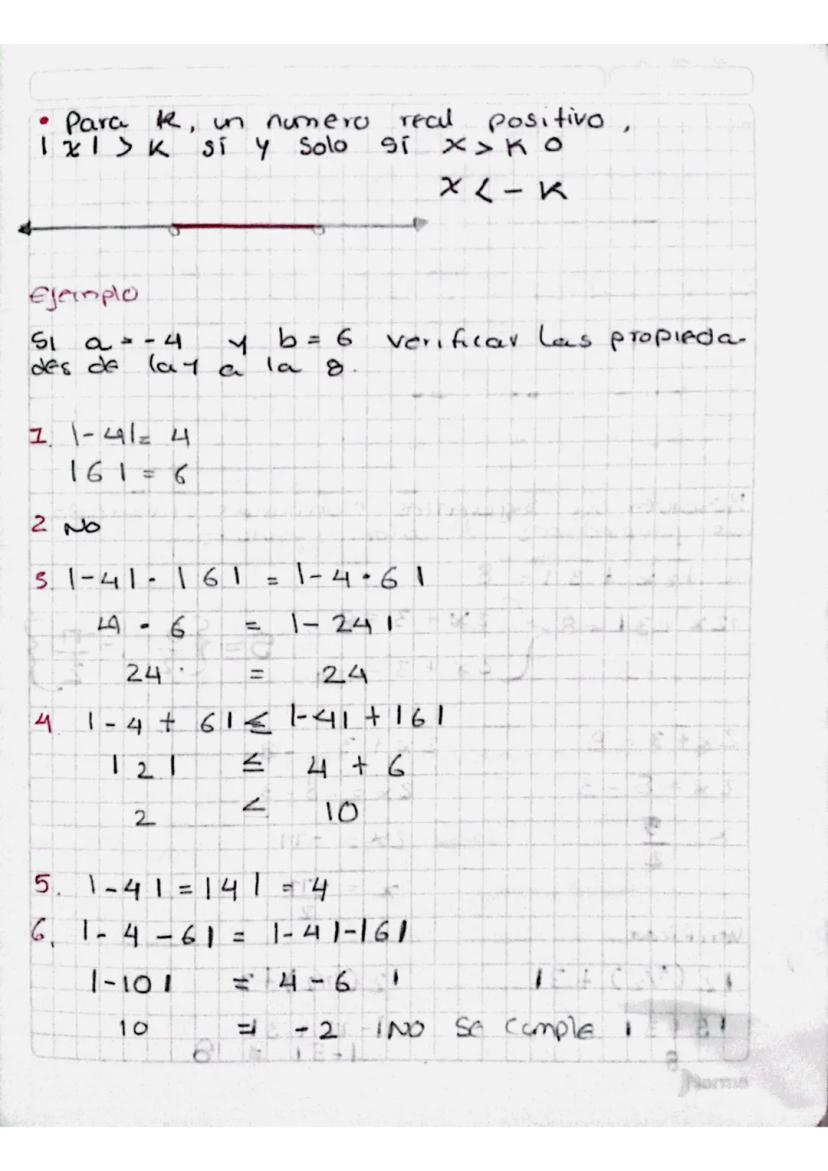 • Para K, un numero real positivo,
|x| > K sí y solo sí x > K o
x < - K
Ejemplo
Si a = -4 y b = 6 verificar las propieda-
des de la 1 a la 8.
1. |-4| = 4
|6| = 6
2 No
3. |-4| · |6| = |-4 · 6|
4 · 6 = |-24|
24 = 24
4 |-4 + 6| ≤ |-4| + |6|
|2| ≤ 4 + 6
2 < 10
5. |-4| = |4| = 4
6. |-4 - 6| = |-4| - |6|
|-10| = 4 - 6
10 = - 2 ¡No se cumple!
Norma